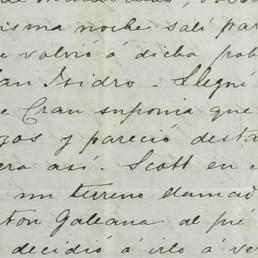 misma noche salí par
e volvió á dicha pob
an Isidro - Llegué
e Cran suponia que
gos y pareció desta
era así. Scott en
un terreno llamad
ton Galeana al pié
decidió á irlo á ve